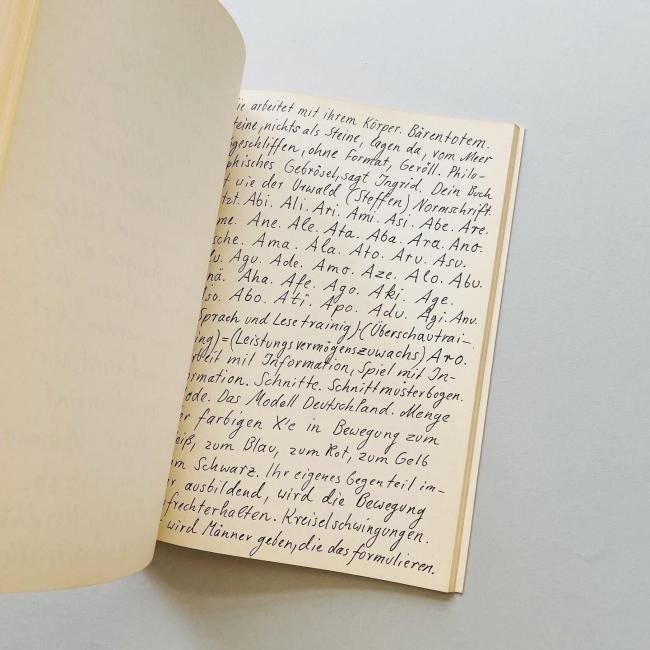 ie arbeitet mit ihrem Körper. Bärentotem.
teine, nichts als Steine, lagen da, vom Meer
geschliffen, ohne Format, Geröll. Philo-
phisches Gebrösel, sagt Ingrid. Dein Buch
t wie der Urwald (Steffen) Normschrift
tzt. Abi. Ali. Ari. Ami. Asi. Abe. Are.
me. Ane. Ale. Ata. Aba. Ara. Ano.
sche. Ama. Ala. Ato. Aru. Asu.
lu. Agu. Ade. Amo. Aze. Alo. Abu.
nä. Aha. Afe. Ago. Aki. Age.
lso. Abo. Ati. Apo. Adu. Agi. Anu.
Sprach und Lesetrainig)-(Überschautrai-
ing)=(Leistungsvermögenszuwachs) Aro.
rbeil mil Information, Spiel mit In-
ormation. Schnitte. Schnittmüsterbogen.
ode. Das Modell Deutschland. Menge
er farbigen X'e in Bewegung zum
eiß, zum Blau, zum Rot, zum Gelb
um Schwarz. Ihr eigenes Gegenteil im-
r ausbildend, wird die Bewegung
frechterhalten. Kreiselschwingungen.
wird Männer geben, die das formulieren.